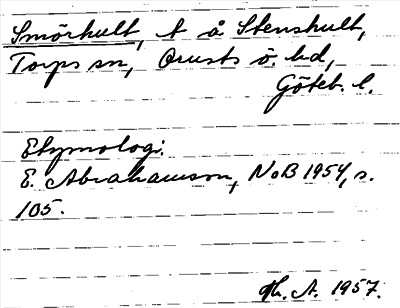 Smörhult, t å Stenshult,
Torps sn, Orusts ö. hd,
Göteb. l.
Etymologi.
E. Abrahamson, NoB 1954, s.
105.
Th. A. 1957.